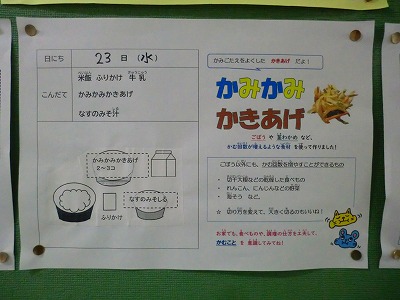 日にち 23 日 (水)
こんだて
米飯 ふりかけ 牛乳
かみかみかきあげ
なすのみそ汁
かみかみかきあげ
2~3コ
なすのみそしる
ふりかけ
かみごたえをよくした かきあげ だよ!
かみかみ
かきあげ
ごぼう や 茎わかめ など、
かむ回数が増えるような食材 を使って作りました!
ごぼう以外にも、かむ回数を増やすことができるもの
・ 切干大根などの乾燥した食べもの
・ れんこん、にんじんなどの野菜
・ 海そう など。
☆ 切り方を変えて、大きく切るのもいいね!
お家でも、食べものや、調理の仕方を工夫して、
かむこと を 意識してみてね!